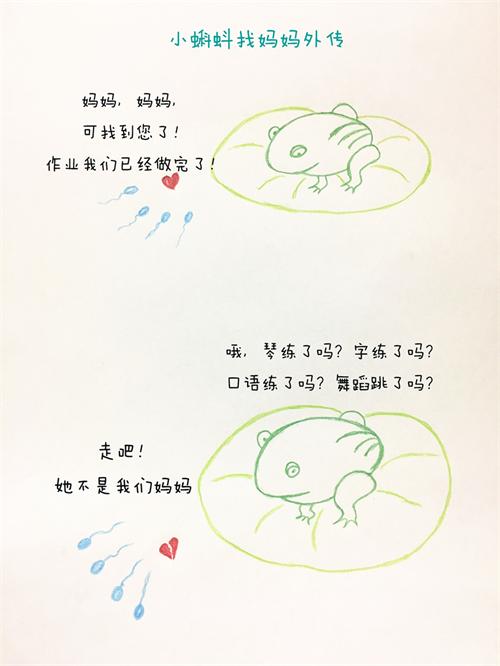 小蝌蚪找妈妈外传
妈妈，妈妈，
可找到您了！
作业我们已经做完了！
哦，琴练了吗？字练了吗？
口语练了吗？舞蹈跳了吗？
走吧！
她不是我们妈妈